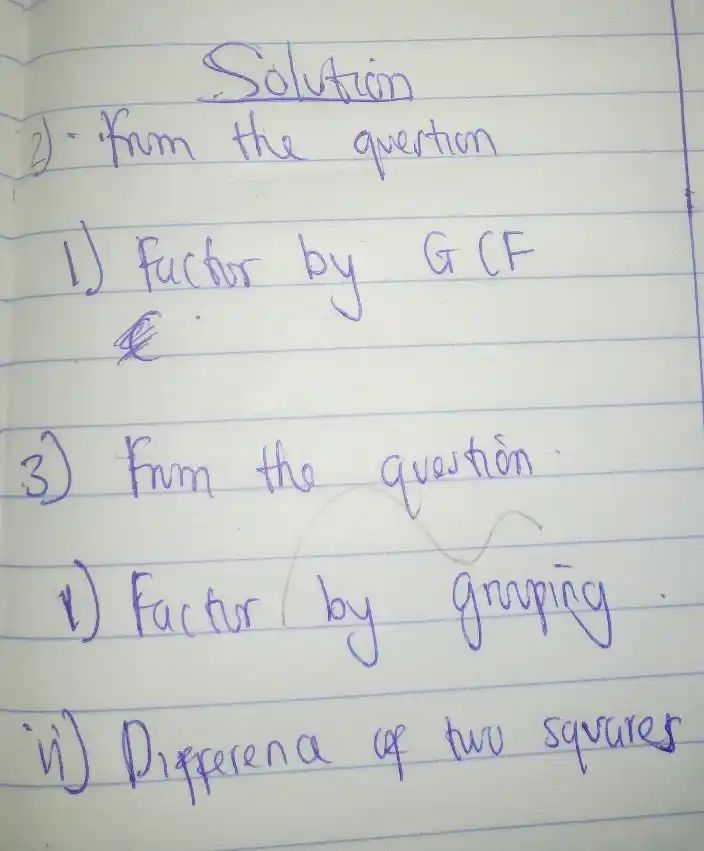 Solution
2) - From the question
1) Factor by GCF
3) From the question.
i) Factor by grouping.
ii) Difference of two squares